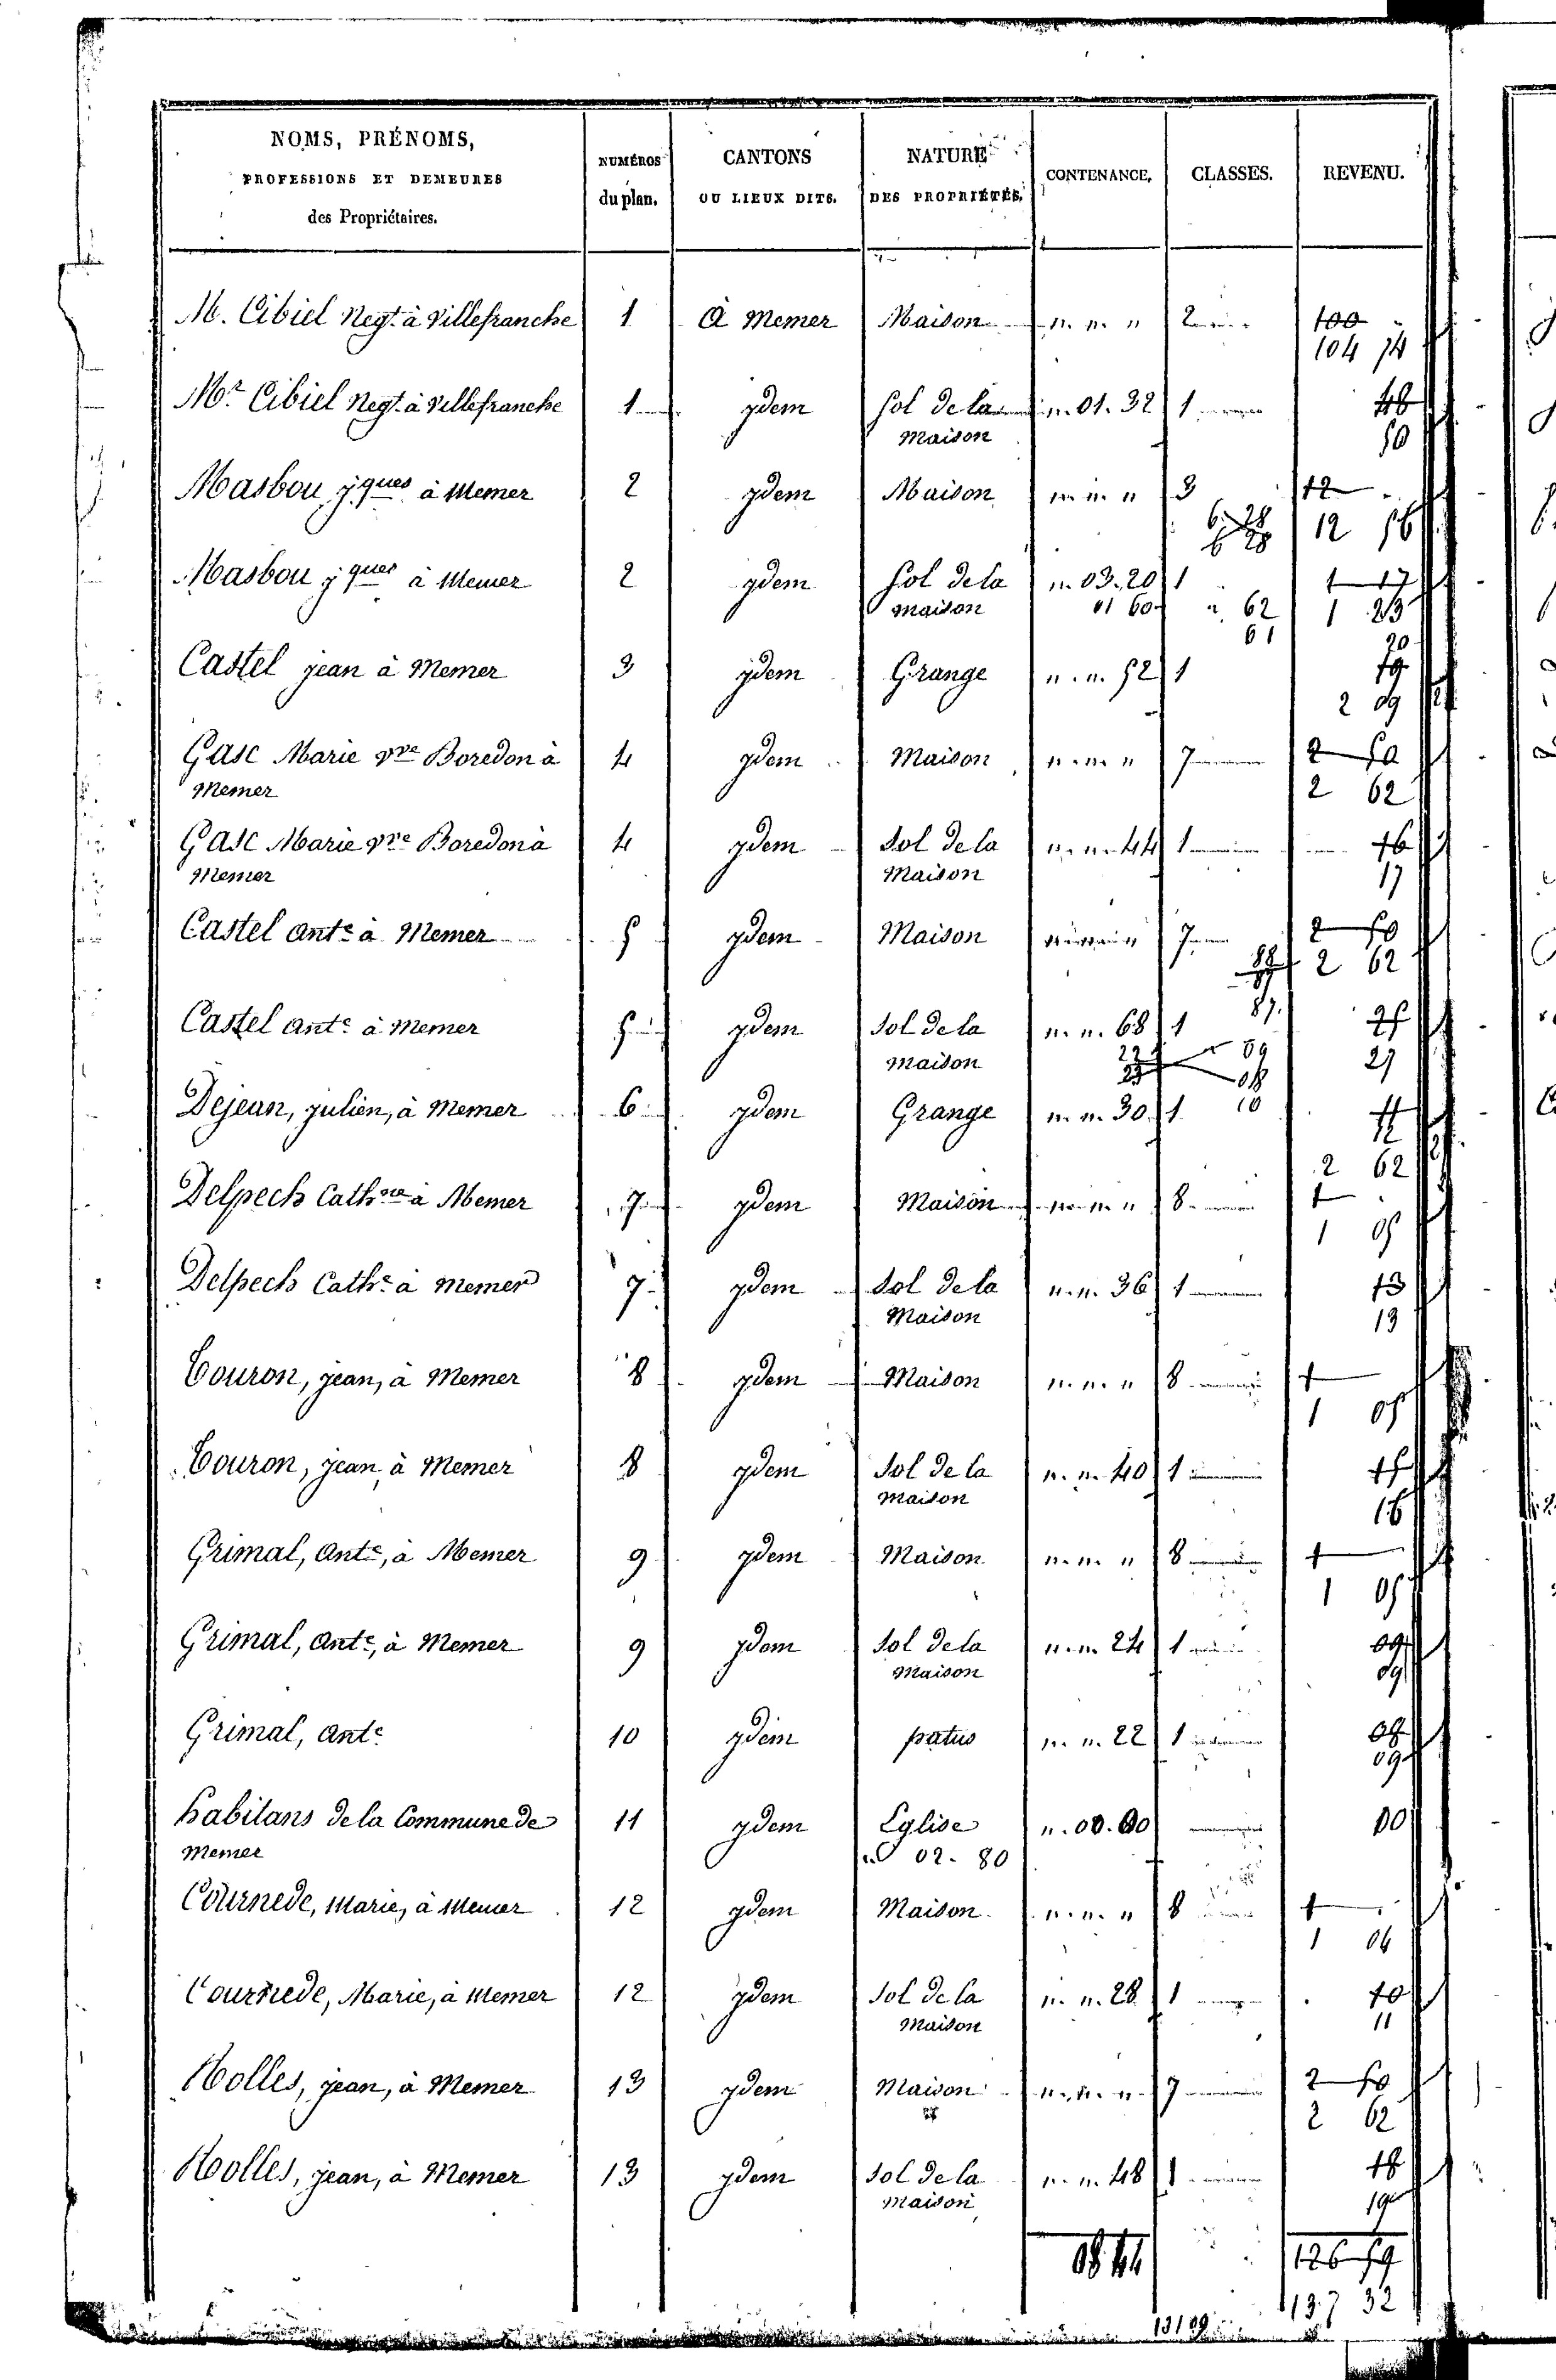 NOMS, PRÉNOMS, PROFESSIONS ET DEMEURES des Propriétaires. NUMÉROS du plan. CANTONS OU LIEUX DITS. NATURE DES PROPRIÉTÉS. CONTENANCE. CLASSES. REVENU.
M. Cibiel Negt. à Villefranche 1 à Memer Maison " " " 2 100
104 74
Mr Cibiel Negt. à Villefranche 1 ydem Sol de la " 01. 32 1 48
Maison 50
Masbou jques à Memer 2 ydem Maison " " " 3 12
6. 28 12 56
6 28
Masbou jques à Memer 2 ydem Sol de la " 03. 20 1 1 17
Maison 01 60 " 62 1 23
61
Castel jean à Memer 3 ydem Grange " " 52 1 20
19
2 09
Gasc Marie vve Boredon à 4 ydem Maison " " " 7 2 50
Memer 2 62
Gasc Marie vve Boredon à 4 ydem Sol de la " " 44 1 16
Memer Maison 17
Castel Ante à Memer 5 ydem Maison " " " 7 2 50
2 62
87.
Castel Ante à Memer 5 ydem Sol de la " " 68 1 25
Maison 09 27
08
Dejean, julien, à Memer 6 ydem Grange " " 30 1 10 11
12
2 62
Delpech Cathne à Memer 7 ydem Maison " " " 8 1
1 05
Delpech Cathe à Memer 7 ydem Sol de la " " 36 1 13
Maison 13
Couron, jean, à Memer 8 ydem Maison " " " 8 1
1 05
Couron, jean, à Memer 8 ydem Sol de la " " 40 1 15
Maison 16
Grimal, Ante, à Memer 9 ydem Maison " " " 8 1
1 05
Grimal, Ante, à Memer 9 ydem Sol de la " " 24 1 09
Maison 09
Grimal, Ante 10 ydem patus " " 22 1 08
09
habitans de la Commune de 11 ydem Eglise " 00. 00 00
Memer 02. 80
Cournede, Marie, à Memer 12 ydem Maison " " " 8 1
1 04
Cournede, Marie, à Memer 12 ydem Sol de la " " 28 1 10
Maison 11
Nolles, jean, à Memer 13 ydem Maison " " " 7 2 50
2 62
Nolles, jean, à Memer 13 ydem Sol de la " " 48 1 18
Maison 19
08 44 126 59
137 32